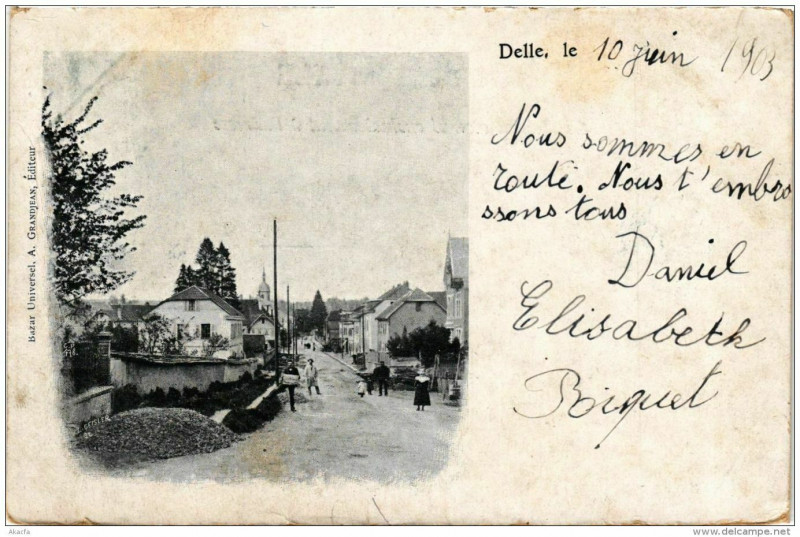 Delle, le 10 juin 1903
Nous sommes en
route. Nous t'embra
ssons tous
Daniel
Elisabeth
Bazar Universel, A. GRANDJEAN, Éditeur
Akacfa
www.delcampe.net